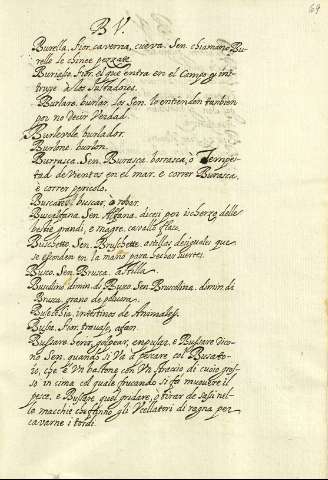 69
BV.
Burella, Fior. caverna, cueva. Sen. chiamano Bu-
relle le chinee pezzate.
Buriasso, Fior. el que entra en el Campo y ins-
truye à los Iustradores.
Burlare, burlar, los Sen. lo entienden tambien
por no decir Verdad.
Burlevole, burlador.
Burlone, burlon.
Burrasca, Sen. Burasca, borrasca, ò Tempes-
tad de Vientos en el mar. e correr Burasca,
è correr pericolo.
Buscare, buscar, ò robar.
Buscalfana, Sen. Alfana, dicesi per ischerzo delle
bestie grandi, e magre, cavallo flaco.
Buschette, Sen. Bruschette, astillas desiguales que
se esconden en la mano para hechar suertes.
Busco, Sen. Brusca, astilla.
Buscolino, dimin. di Busco, Sen. Bruscolino, dimin. de
Brusca, grano de
intestinos de Animales.
Fior. travaso,
Bussare, herir, golpear, empujar, e Bussare dico-
no Sen. quando si Và à pescare col Bussato-
io, che è Vn bastone con Vn straccio di cuoio gros-
so in cima col quale frucando si fà muovere il
pesce, e Bussare quel gridare, ò tirar de sassi nel-
le macchie che fanno gli Vcellatori di ragna per
cavarne i tordi.